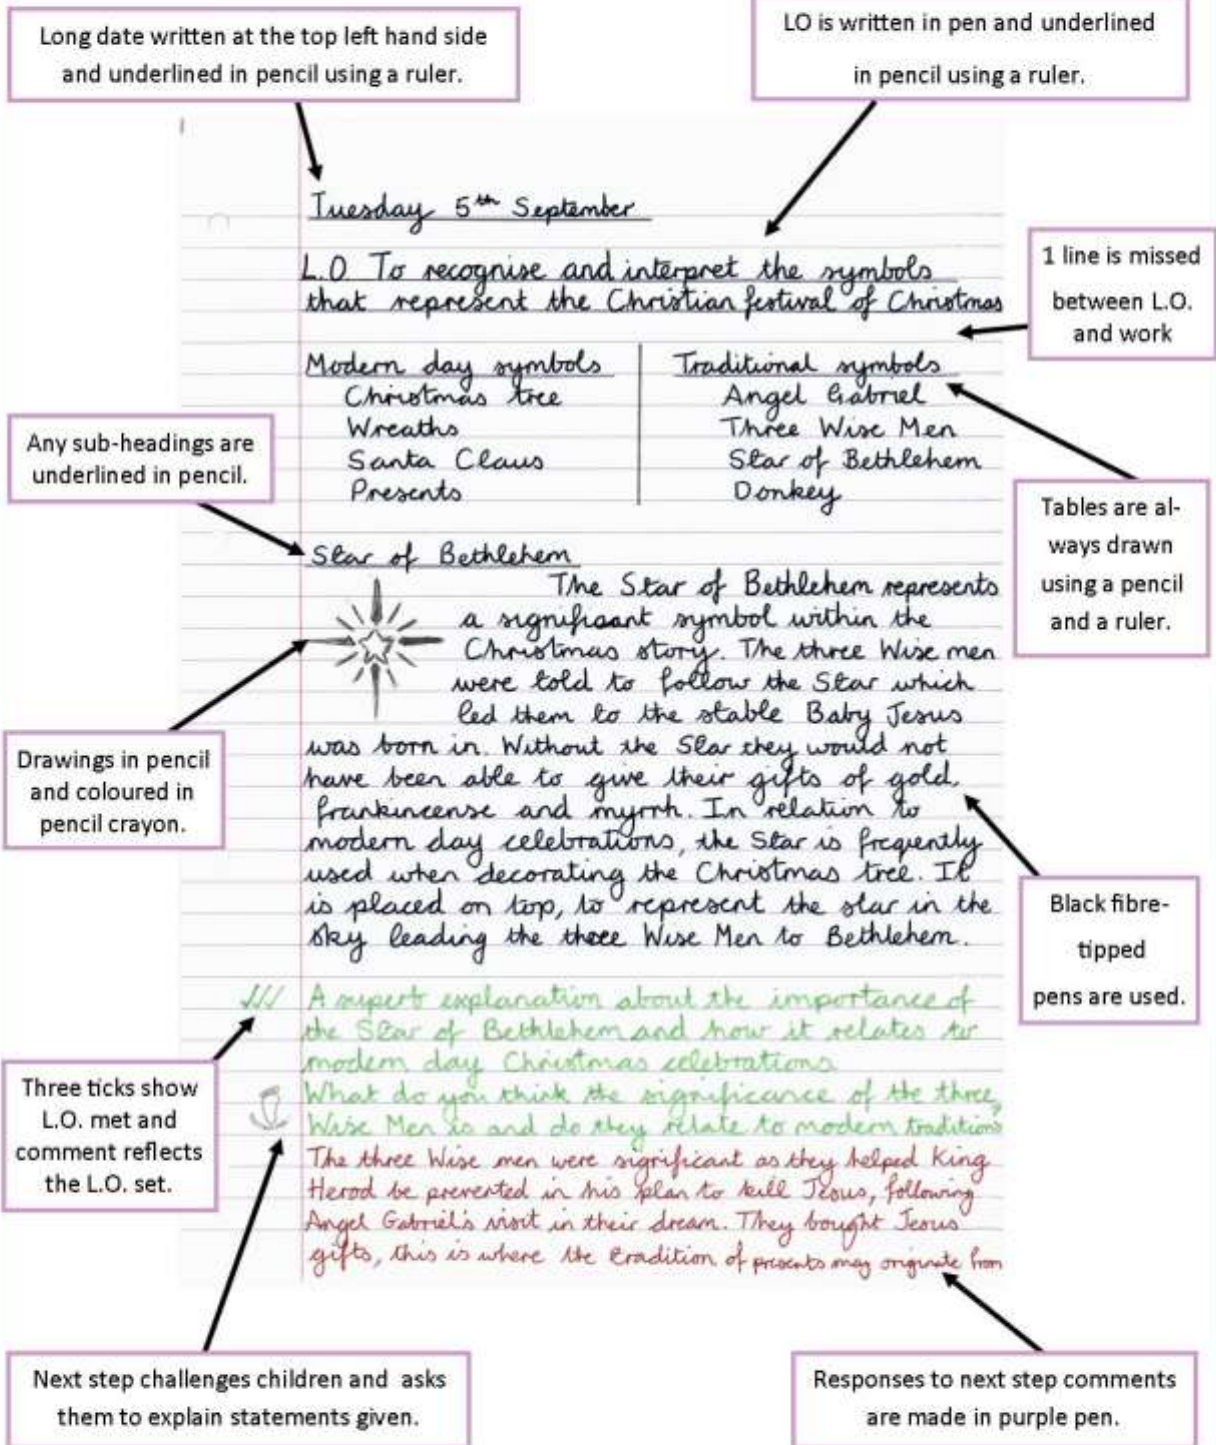 Long date written at the top left hand side
and underlined in pencil using a ruler.
LO is written in pen and underlined
in pencil using a ruler.
Tuesday 5th September
L.O To recognise and interpret the symbols
that represent the Christian festival of Christmas
1 line is missed
between L.O.
and work
Modern day symbols
Christmas tree
Wreaths
Santa Claus
Presents
Traditional symbols
Angel Gabriel
Three Wise Men
Star of Bethlehem
Donkey
Any sub-headings are
underlined in pencil.
Tables are al-
ways drawn
using a pencil
and a ruler.
Star of Bethlehem
The Star of Bethlehem represents
a significant symbol within the
Christmas story. The three Wise men
were told to follow the Star which
led them to the stable Baby Jesus
was born in. Without the Star they would not
have been able to give their gifts of gold,
frankincense and myrrh. In relation to
modern day celebrations, the Star is freqently
used when decorating the Christmas tree. It
is placed on top, to represent the star in the
sky leading the three Wise Men to Bethlehem.
Drawings in pencil
and coloured in
pencil crayon.
Black fibre-
tipped
pens are used.
A superb explanation about the importance of
the Star of Bethlehem and how it relates to
modern day Christmas celebrations
What do you think the significance of the three
Wise Men is and do they relate to modern traditions?
The three Wise men were significant as they helped King
Herod be prevented in his plan to kill Jesus, following
Angel Gabriel's visit in their dream. They bought Jesus
gifts, this is where the tradition of presents may originate from
Three ticks show
L.O. met and
comment reflects
the L.O. set.
Next step challenges children and asks
them to explain statements given.
Responses to next step comments
are made in purple pen.